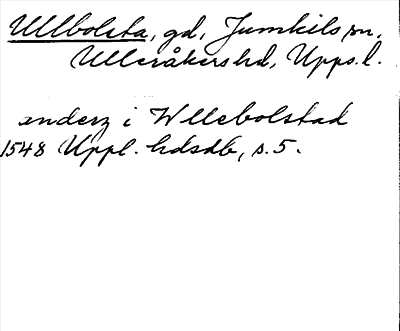 Ullbolsta, gd, Jumkils sn,
Ulleråkers hd, Upps. l.
anderz i Wllebolstad
1548 Uppl. hdsdb, s. 5.